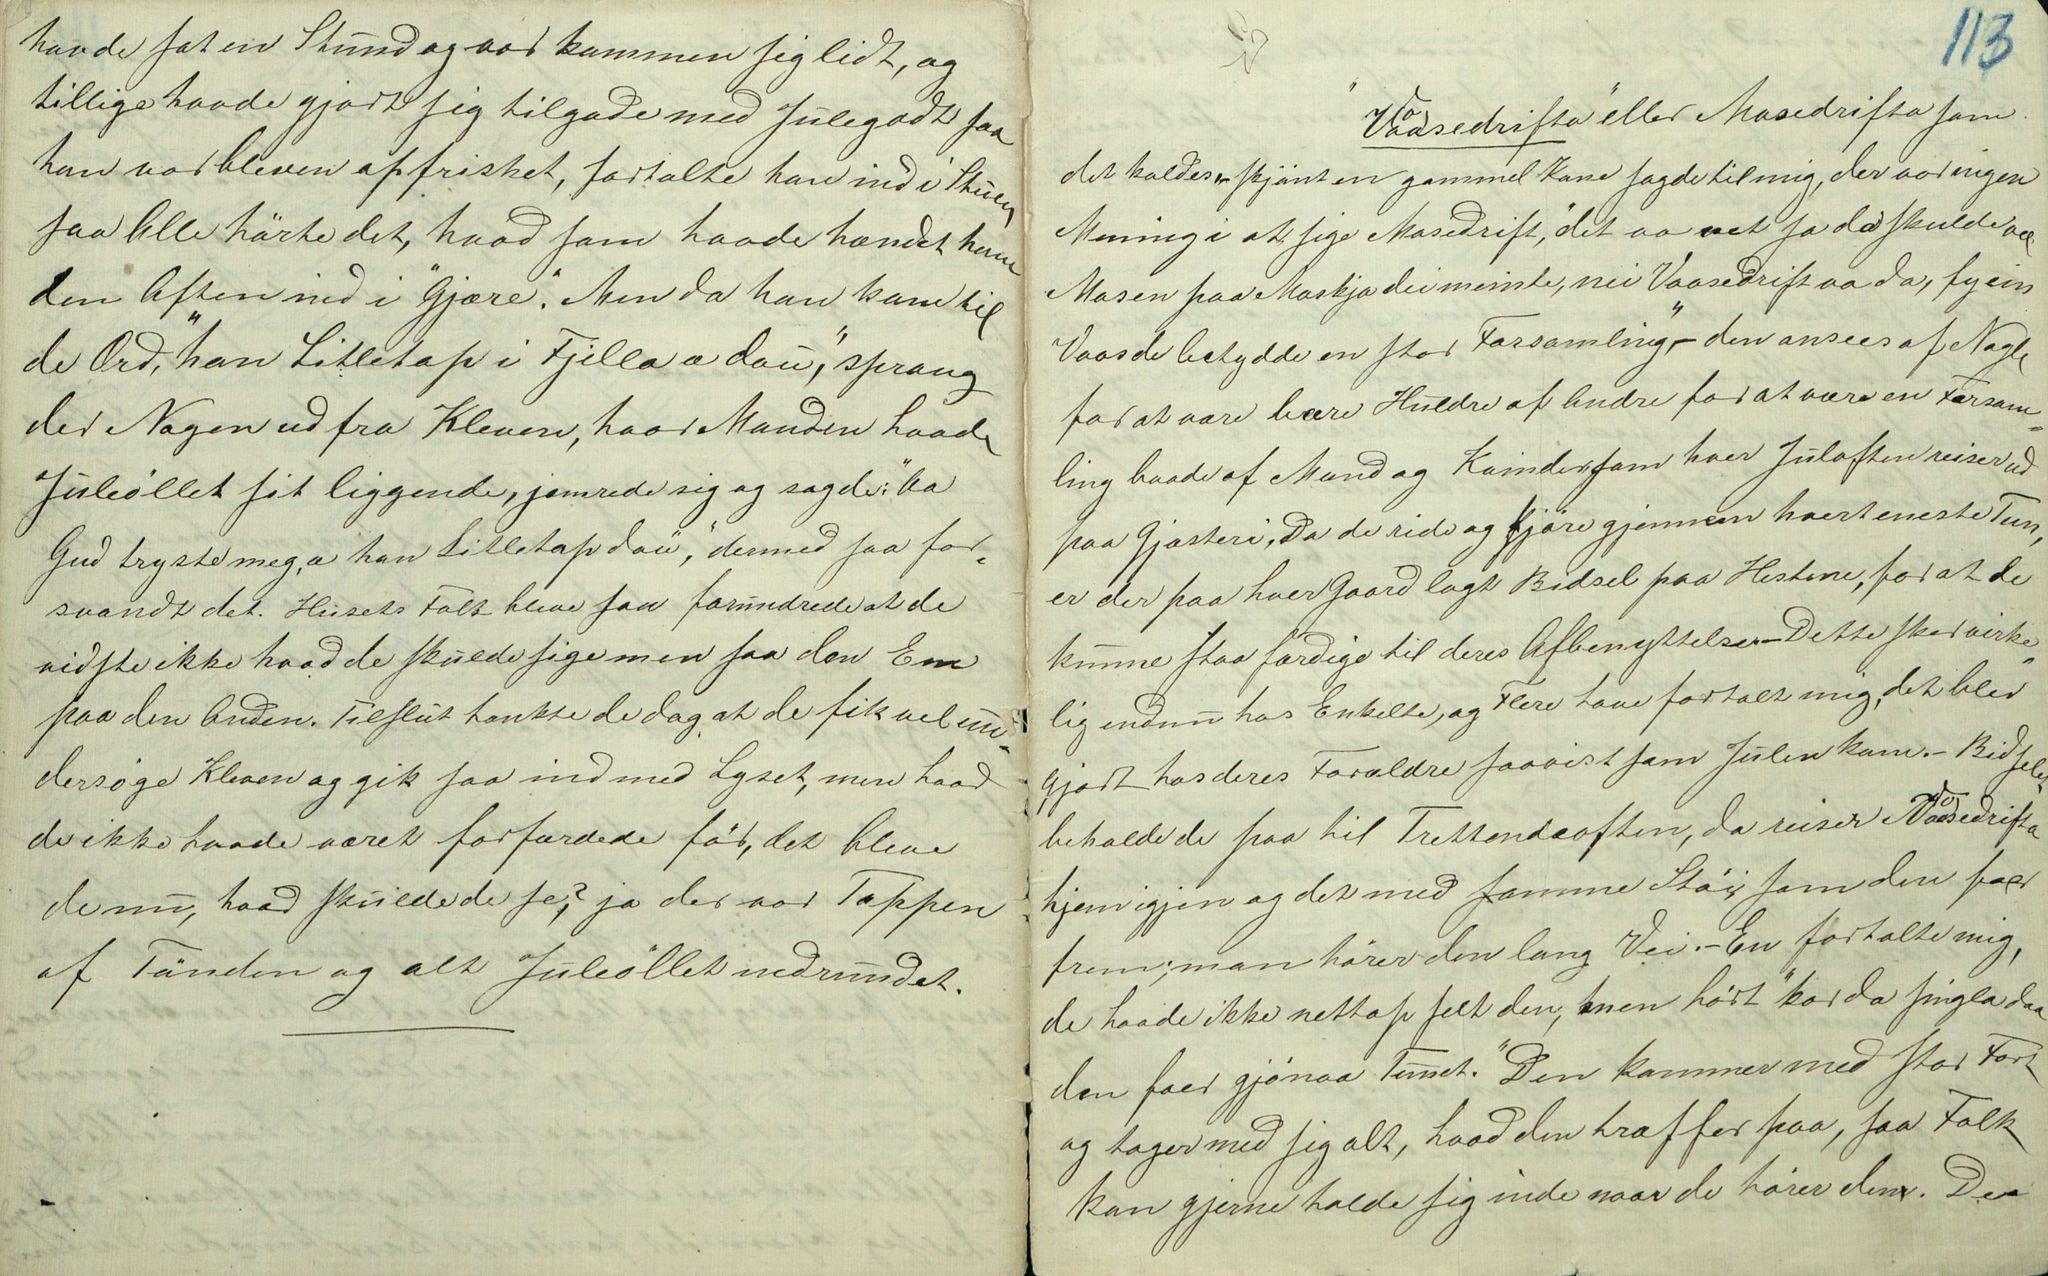 havde sat en Stund og var kommen sig lidt, og
tillige havde gjort sig tilgode med Julegodt saa
han var bleven opfrisket, fortalte han ind i Stuen
saa Alle hörte det, hvad som havde hændet ham
den Aften ind i "Gjære". Men da han kom til
de Ord, "han Litletop i Fjella a dau," sprang
der Nogen ud fra Kleven, hvor Manden havde
Juleöllet sit liggende, jamrede sig og sagde: "Aa
Gud tryste meg, a han Litletop dau," dermed saa for-
svandt det. Husets Folk bleve saa forundrede at de
vidste ikke hvad de skulde sige men saa den Ene
paa den Anden. Tilslut tænkte de dog at de fik vel un-
dersøge Kleven og gik saa ind med Lyset, men havde
de ikke havde været forfærdede før, det bleve
de nu, hvad skulde de se? jo der var Tappen
af Tönden og alt Juleöllet nedrundet.
113
"Vaasedrifta" eller Masedrifta som
det kaldes, skjönt en gammel Kone sagde til mig, der var ingen
Mening i at sige Masedrift, "det va net so da skulde vel
Masen paa Maskja dei meinte, nei Vaasedrift va da, fy ein
Vaase betydde en stor Forsamling" - den ansees af Nogle
for at være bare Huldre af Andre for at være en Forsam-
ling baade af Mænd og Kvinder, som hver Juleaften reiser ud
paa Gjæsteri. Da de ride og kjöre gjennem hvert eneste Tun,
er der paa hver Gaard lagt Bidsel paa Hestene, for at de
kunne staa færdige til deres Afbenyttelse - Dette sker virke-
lig endnu hos Enkelte, og Flere have fortalt mig, det blev
gjort hos deres Forældre saavist som Julen kom. - Bidselet
beholde de paa til Trettendeaften, da reiser Vaasedrifta
hjem igjen og det med samme Stöi, som den foer
frem; man hörer den lang Vei. - En fortalte mig,
de havde ikke nettop seet den, men hört "kor da singla daa
den foer gjönaa Tunet." Den kommer med stor Fart
og tager med sig alt, hvad den træffer paa, saa Folk
kan gjerne holde sig inde naar de hörer den. Den